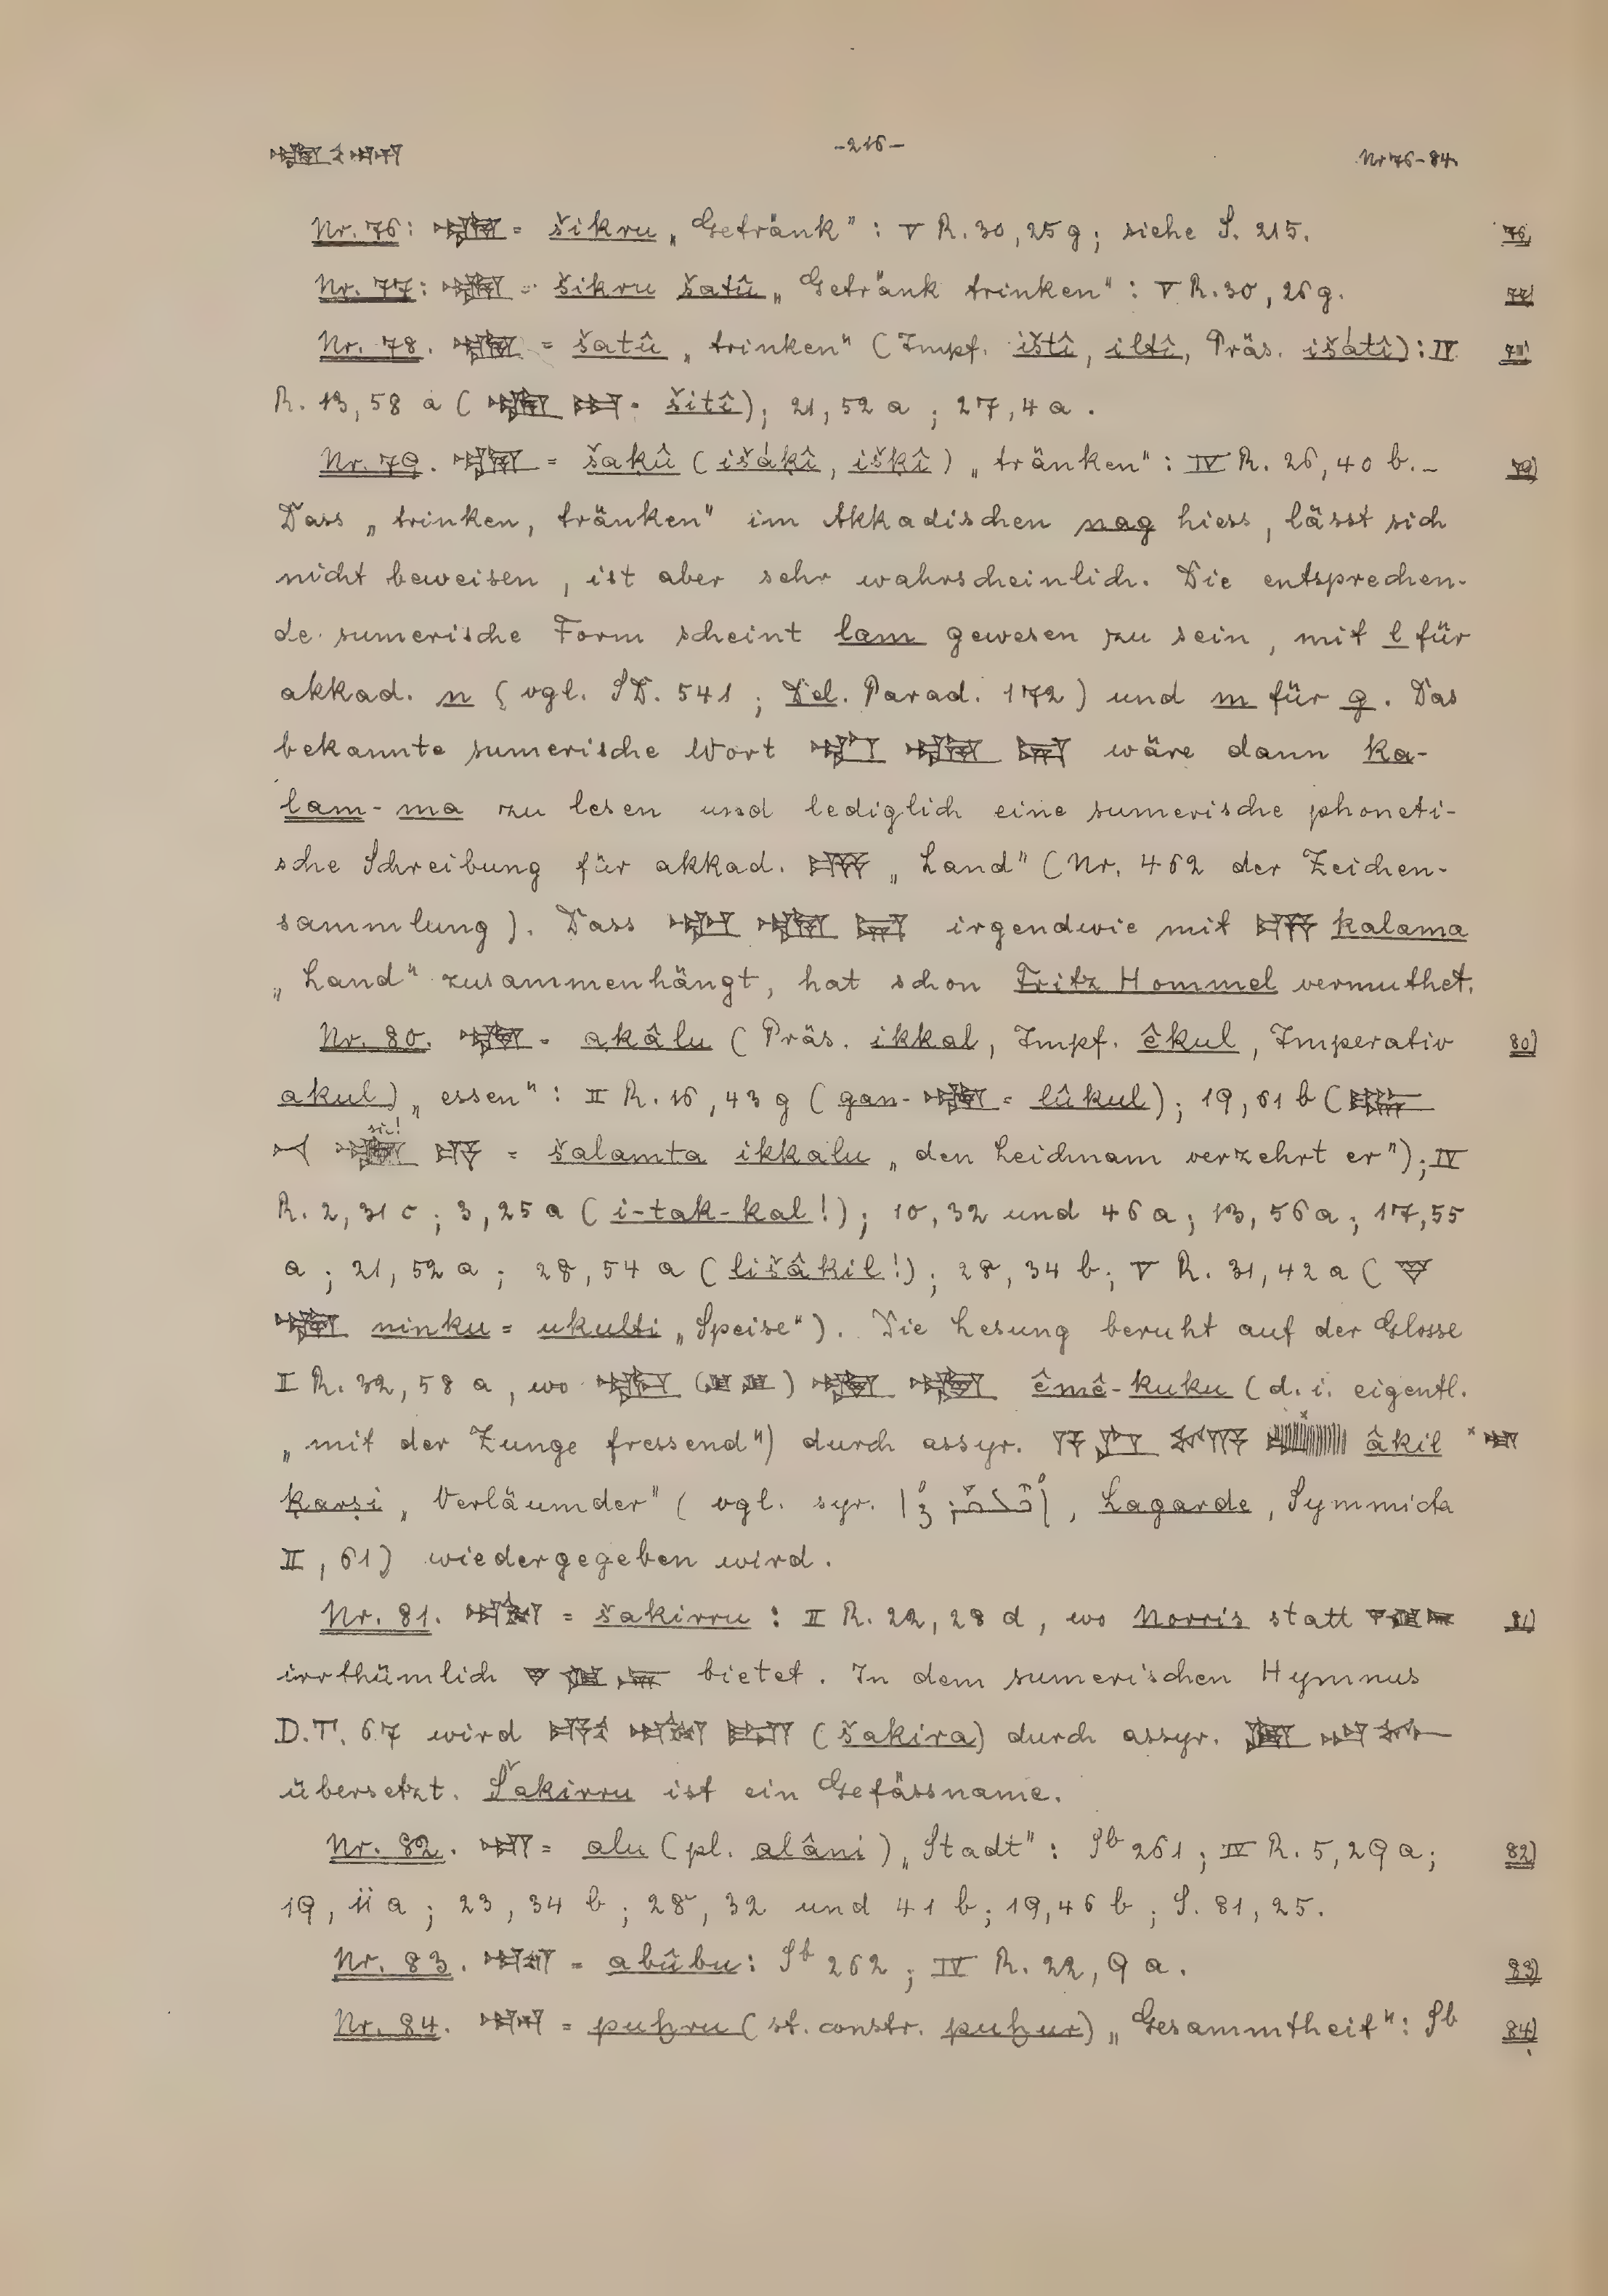 -216-
Nr 76-84.
Nr. 76: = šikru „Getränk": V R. 30, 25 g; siehe S. 215. 76)
Nr. 77: = šikru šatû „Getränk trinken": V R. 30, 26 g. 77)
Nr. 78. = šatû „trinken" (Impf. ištî, iltî, Präs. išátî): IV 78)
R. 13, 58 a ( = šitî); 21, 52 a; 27, 4 a.
Nr. 79. = šakû (išáḳî, išḳî) „tränken": IV R. 26, 40 b. – 79)
Dass „trinken, tränken" im Akkadischen nag hiess, lässt sich
nicht beweisen, ist aber sehr wahrscheinlich. Die entsprechen-
de sumerische Form scheint lam gewesen zu sein, mit l für
akkad. n (vgl. SD. 541; Del. Parad. 172) und m für g. Das
bekannte sumerische Wort wäre dann ka-
lam-ma zu lesen und lediglich eine sumerische phoneti-
sche Schreibung für akkad. „Land" (Nr. 462 der Zeichen-
sammlung). Dass irgendwie mit kalama
„Land" zusammenhängt, hat schon Fritz Hommel vermuthet.
Nr. 80. = akâlu (Präs. ikkal, Impf. êkul, Imperativ 80)
akul) „essen": II R. 16, 43 g (gan- = lûkul); 19, 61 b (
sic!
= šalamta ikkalu „den Leichnam verzehrt er"); IV
R. 2, 31 c; 3, 25 a (i-tak-kal!); 10, 32 und 46 a; 13, 56 a; 17, 55
a; 21, 52 a; 28, 54 a (lišâkil!); 28, 34 b; V R. 31, 42 a (
ninku = ukulti „Speise"). Die Lesung beruht auf der Glosse
I R. 32, 58 a, wo êmê-kuku (d. i. eigentl.
„mit der Zunge fressend") durch assyr. âkil
ḳarṣi „Verläumder" (vgl. syr. , Lagarde, Symmicta
II, 61) wiedergegeben wird.
Nr. 81. = šakirru: II R. 22, 28 d, wo Norris statt 81)
irrthümlich bietet. In dem sumerischen Hymnus
D.T. 67 wird (šakira) durch assyr.
übersetzt. Šakirru ist ein Gefässname.
Nr. 82. = alu (pl. alâni) „Stadt": Sb 261; IV R. 5, 29 a; 82)
19, 11 a; 23, 34 b; 28, 32 und 41 b; 19, 46 b; S. 81, 25.
Nr. 83. = abûbu: Sb 262; IV R. 22, 9 a. 83)
Nr. 84. = puḫru (st. constr. puḫur) „Gesammtheit": Sb 84)